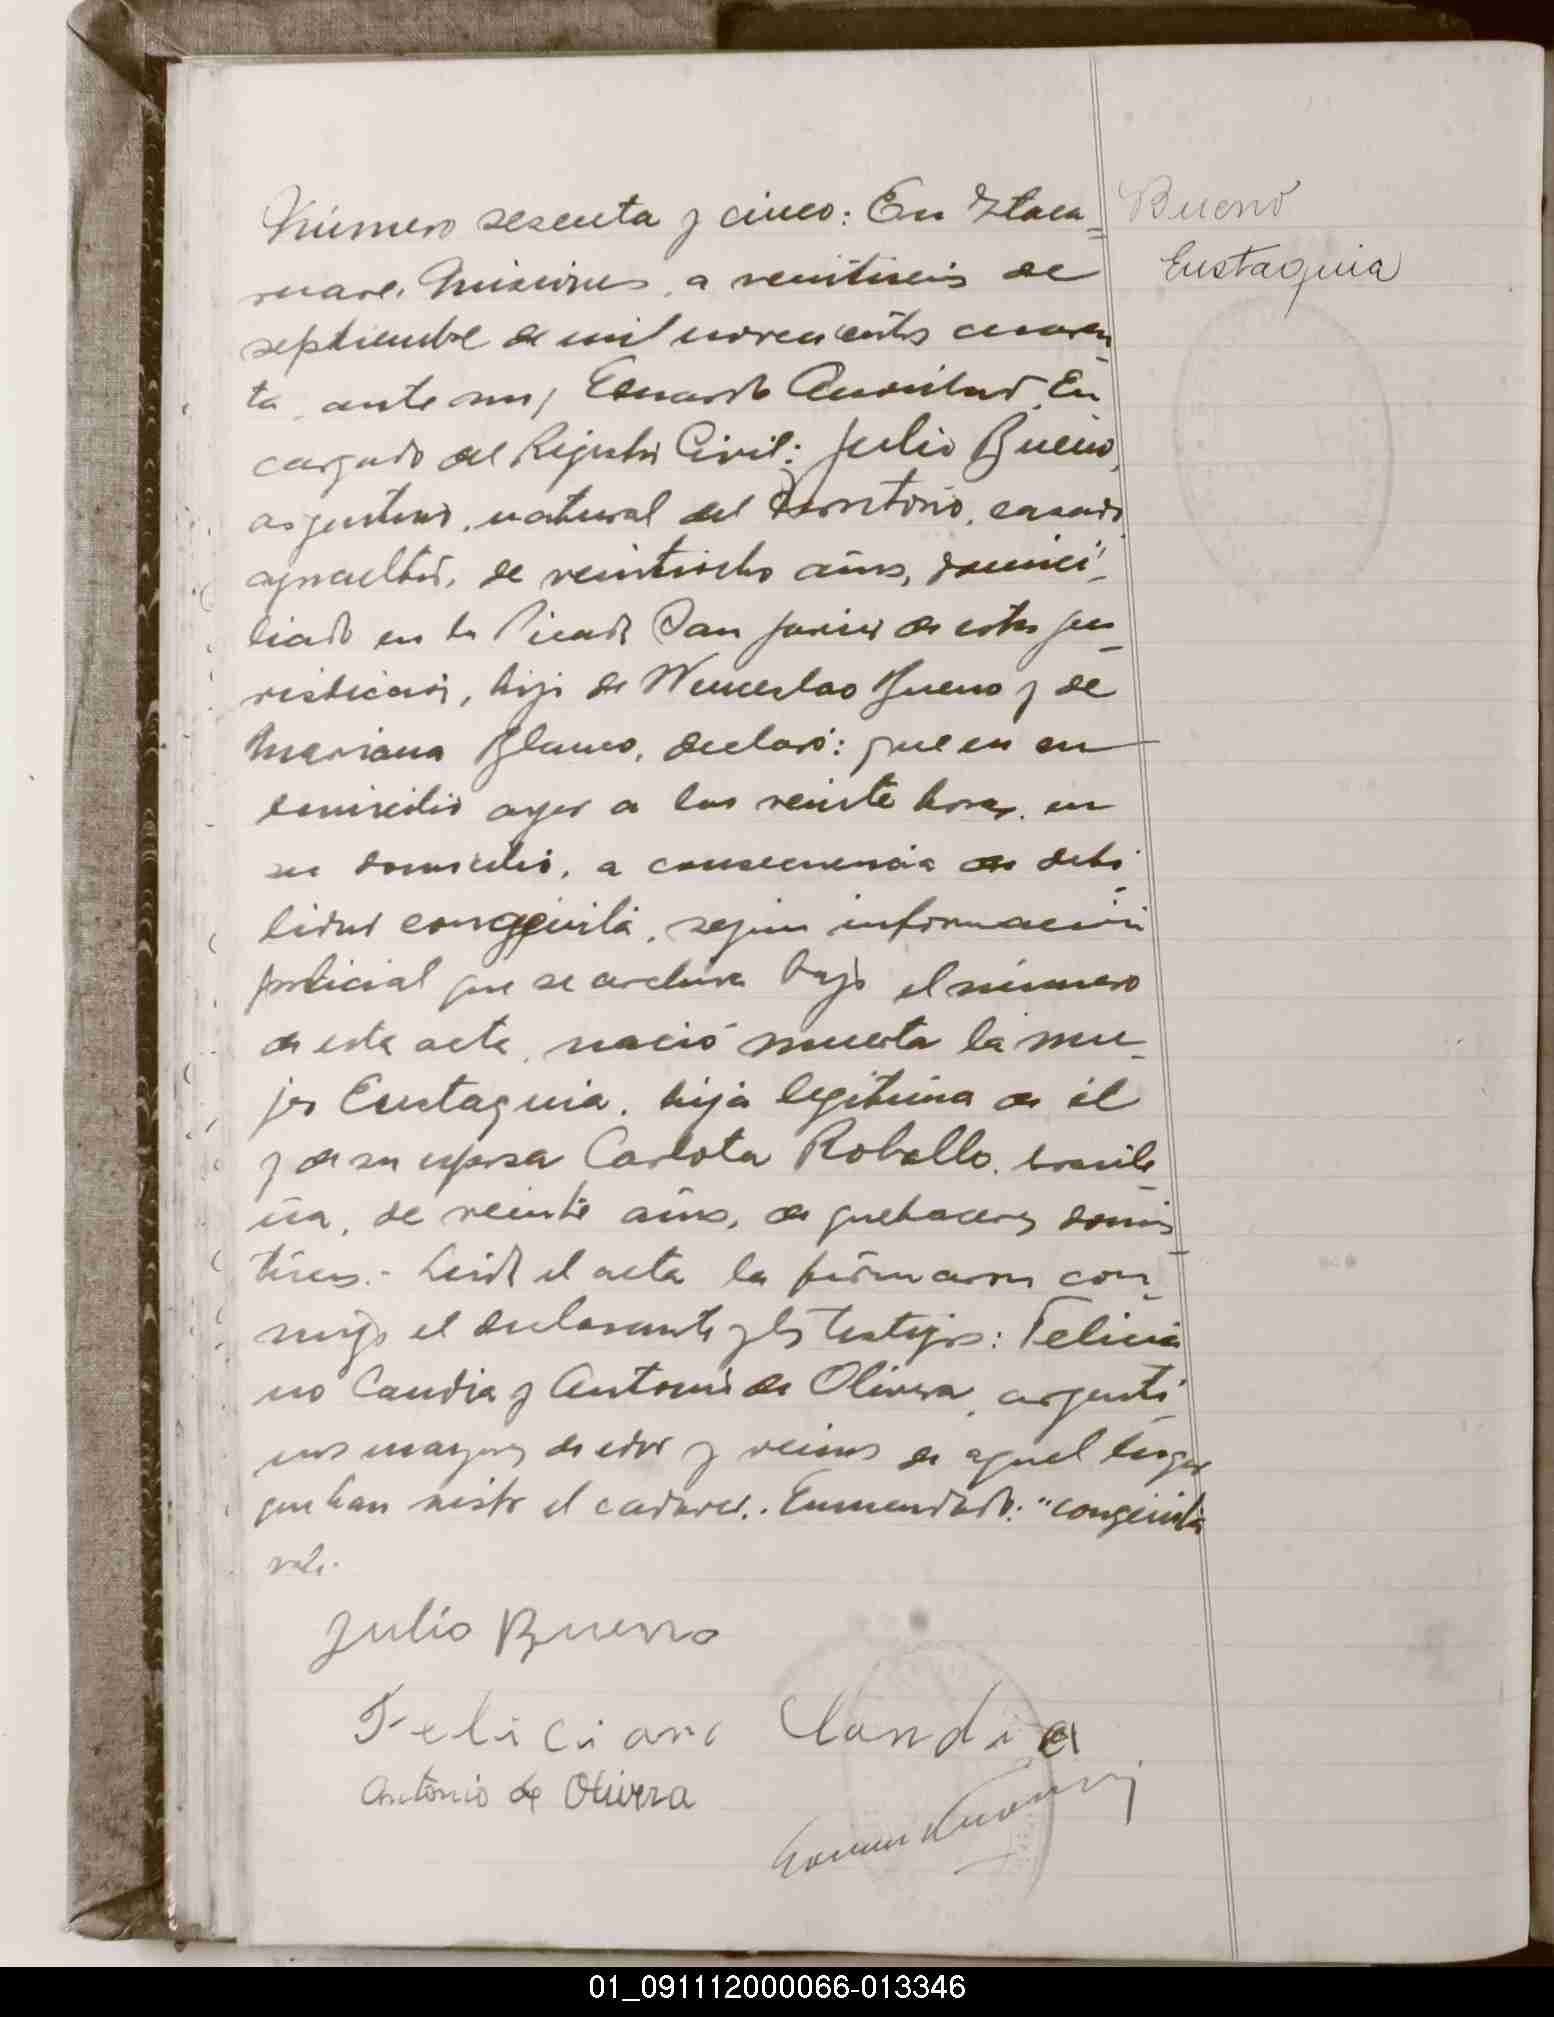 Número sesenta y cinco: En Itaca=
ruaré, Misiones, a veintiseis de
septiembre de mil novecientos cuaren-
ta, ante mi, Eduardo En
cargado del Registro Civil: Julio Bueno,
argentino, natural del Territorio, casado
agricultor, de veintiocho años, domici-
liado en la Picada San Javier de esta ju-
risdiccion, hijo de Wenceslao Bueno y de
Mariana Blanco, declaró: que en su
domicilio ayer a las veinte horas, en
su domicilio, a consecuencia de debi-
lidad congénita, segun información
policial que se archiva bajo el número
de esta acta, nació muerta la mu-
jer Eustaquia, hija legitima de él
y de su esposa Carlota Robello, brasile-
ña, de veinte años, de quehaceres domés-
ticos.- Leida el acta la firmaron con-
migo el declarante y los testigos: Felicia
no Candia y Antonio de Olivera, argenti-
nos mayores de edad y vecinos de aquel lugar
que han visto el cadaver.. Enmendado: "congénita
vale.
Bueno
Eustaquia
Julio Bueno
Feliciano Candia
Antonio de Olivera
01_091112000066-013346